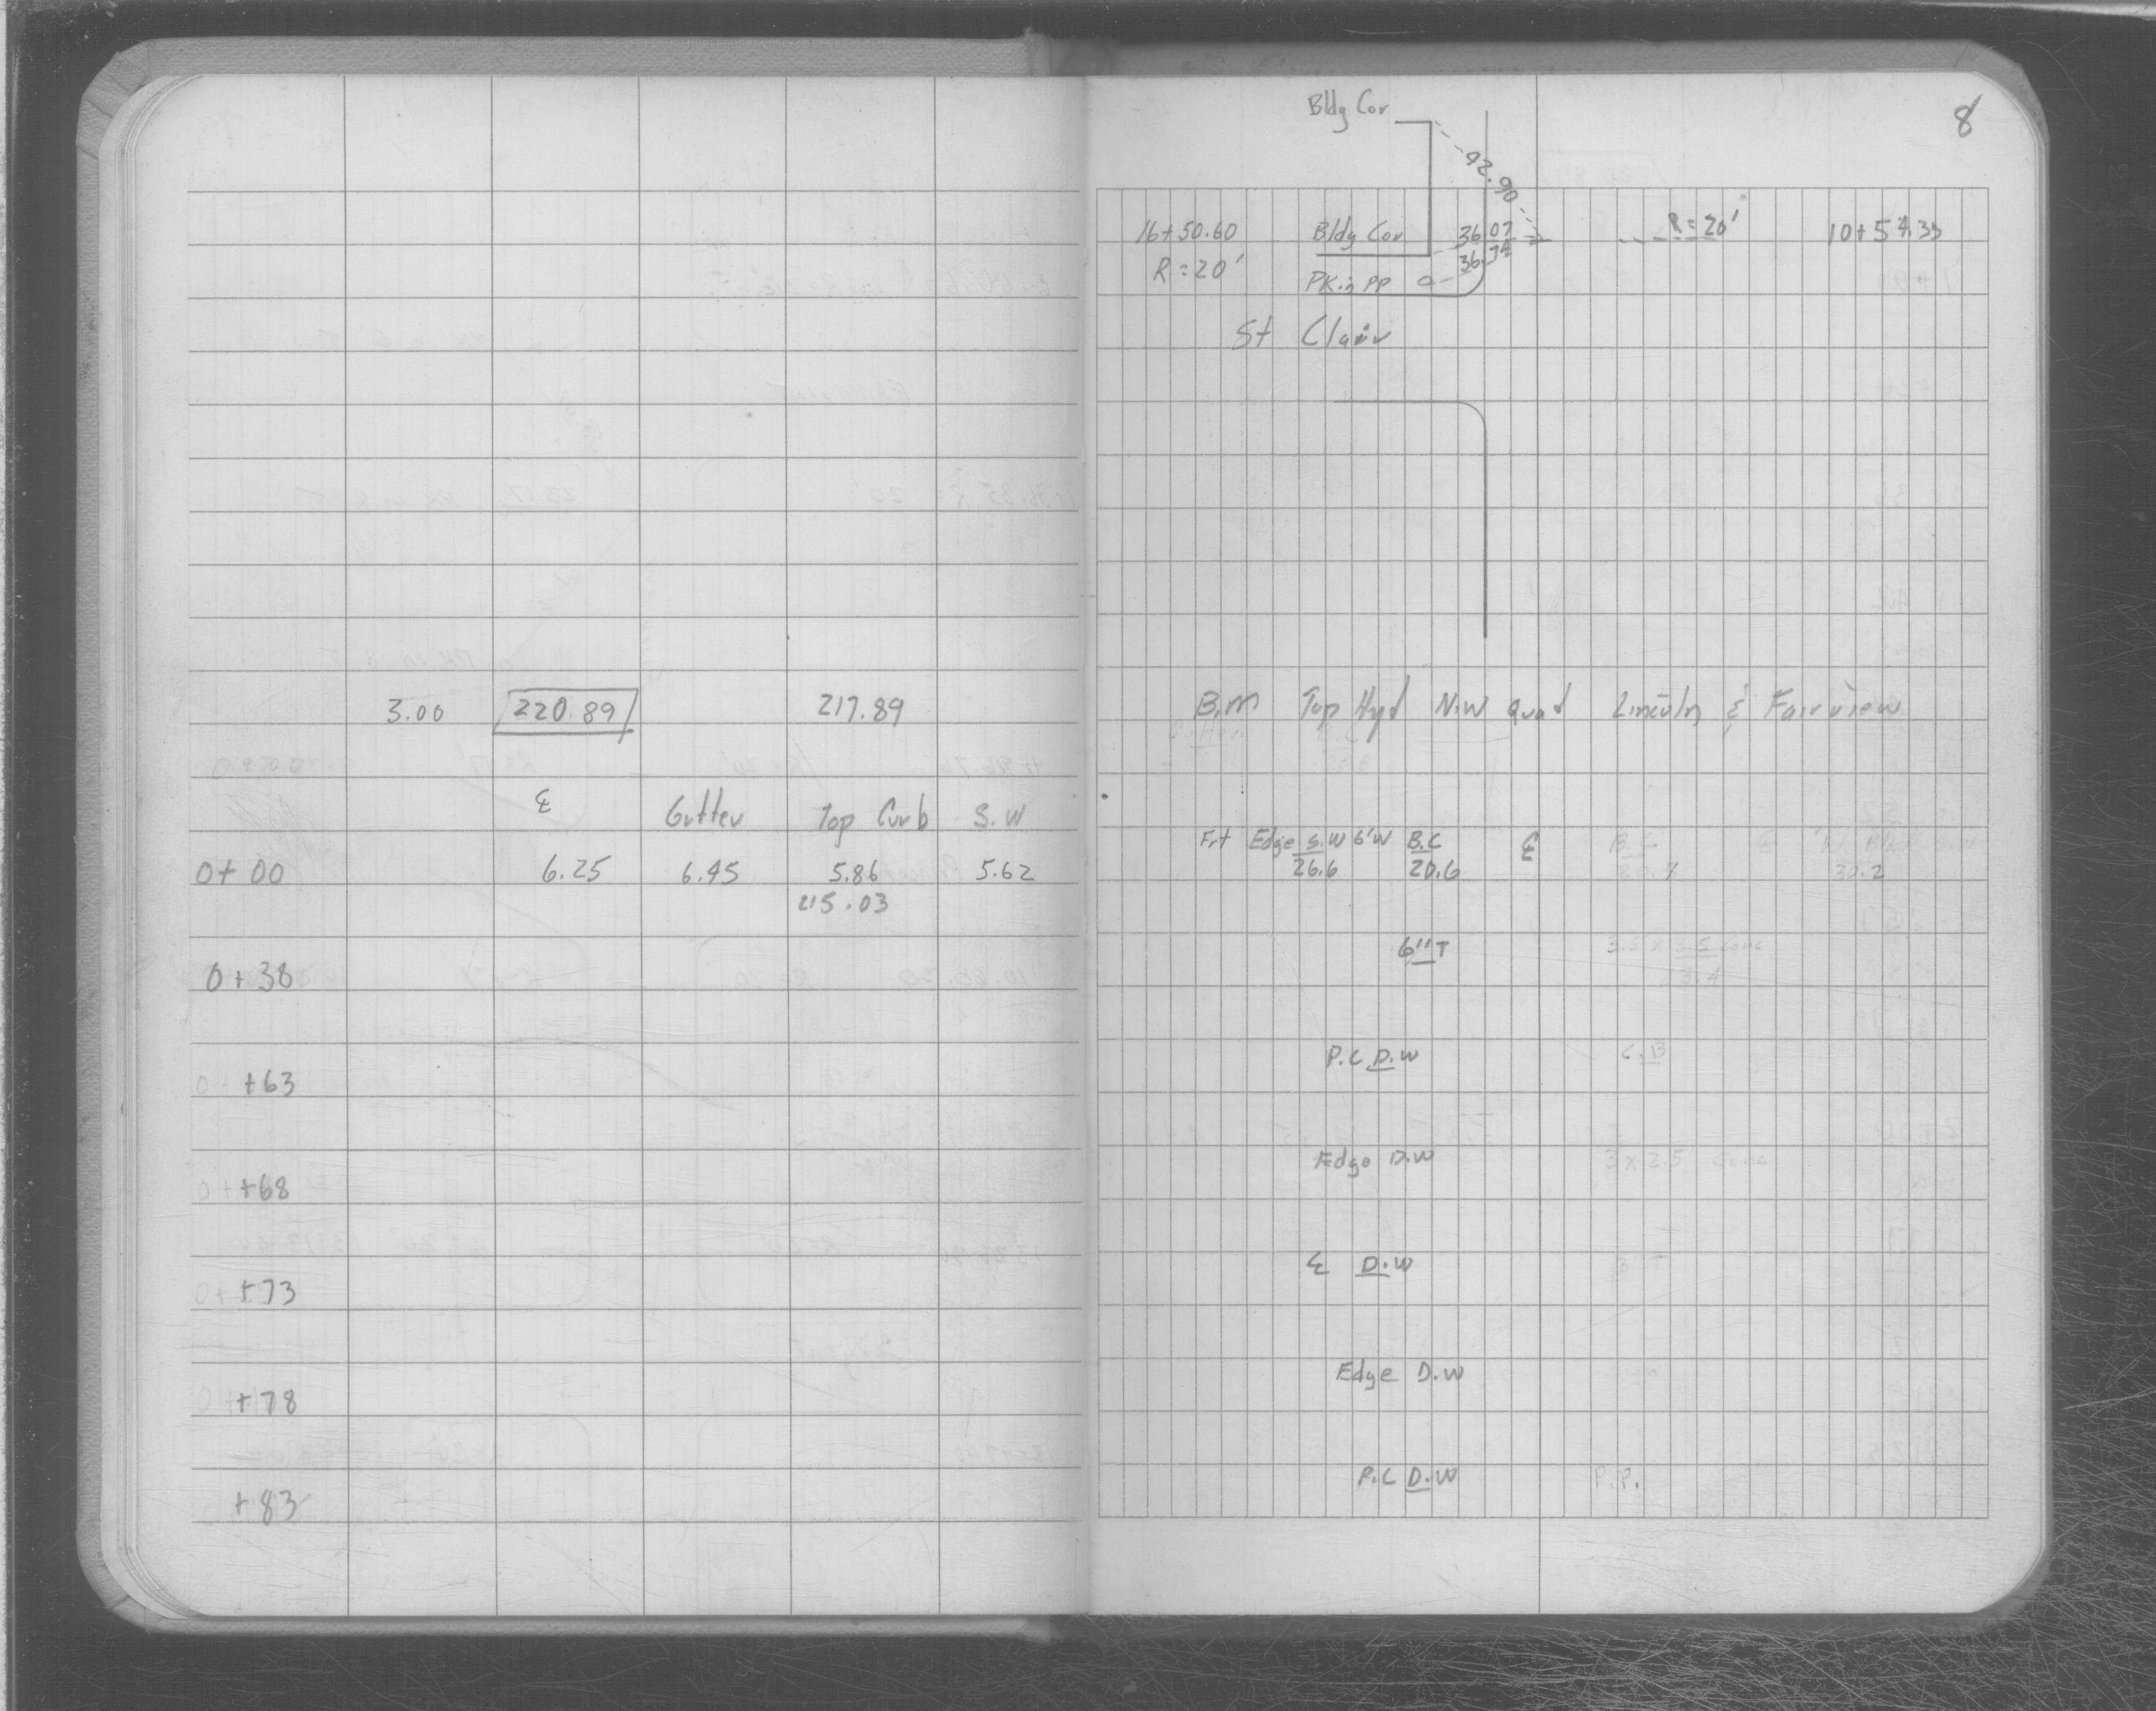 8
Bldg Cor
42.90
16+50.60 Bldg Cor 36.07 R=20' 10+54.33
R=20' PK in PP 36.74
St Clair
3.00 220.89 217.89 B.M Top Hyd N.W Quad Lincoln & Fairview
℄ Gutter Top Curb S.W
Frt Edge S.W 6'W B.C ℄ B.C
0+00 6.25 6.45 5.86 5.62 26.6 20.6 30.2
215.03
6" T
0+38
P.C D.W C.B
+63
Edge D.W 3x2.5 Conc
+68
℄ D.W
+73
Edge D.W
+78
P.C D.W P.P.
+83